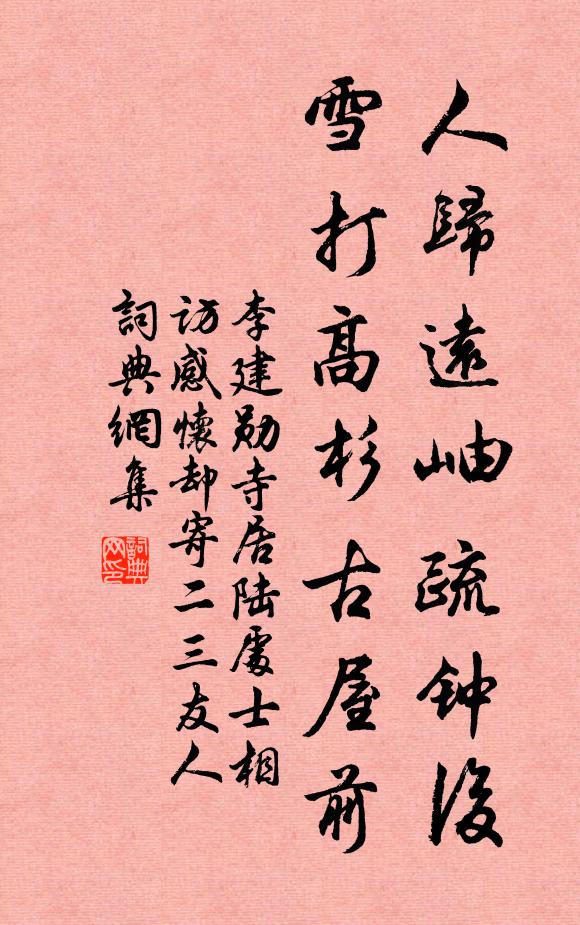 人歸遠岫疏钟後
雪打高杉古屋前
李建勋寺居陆處士相
访感懷却寄二三友人
詞典網集
詞典
网印